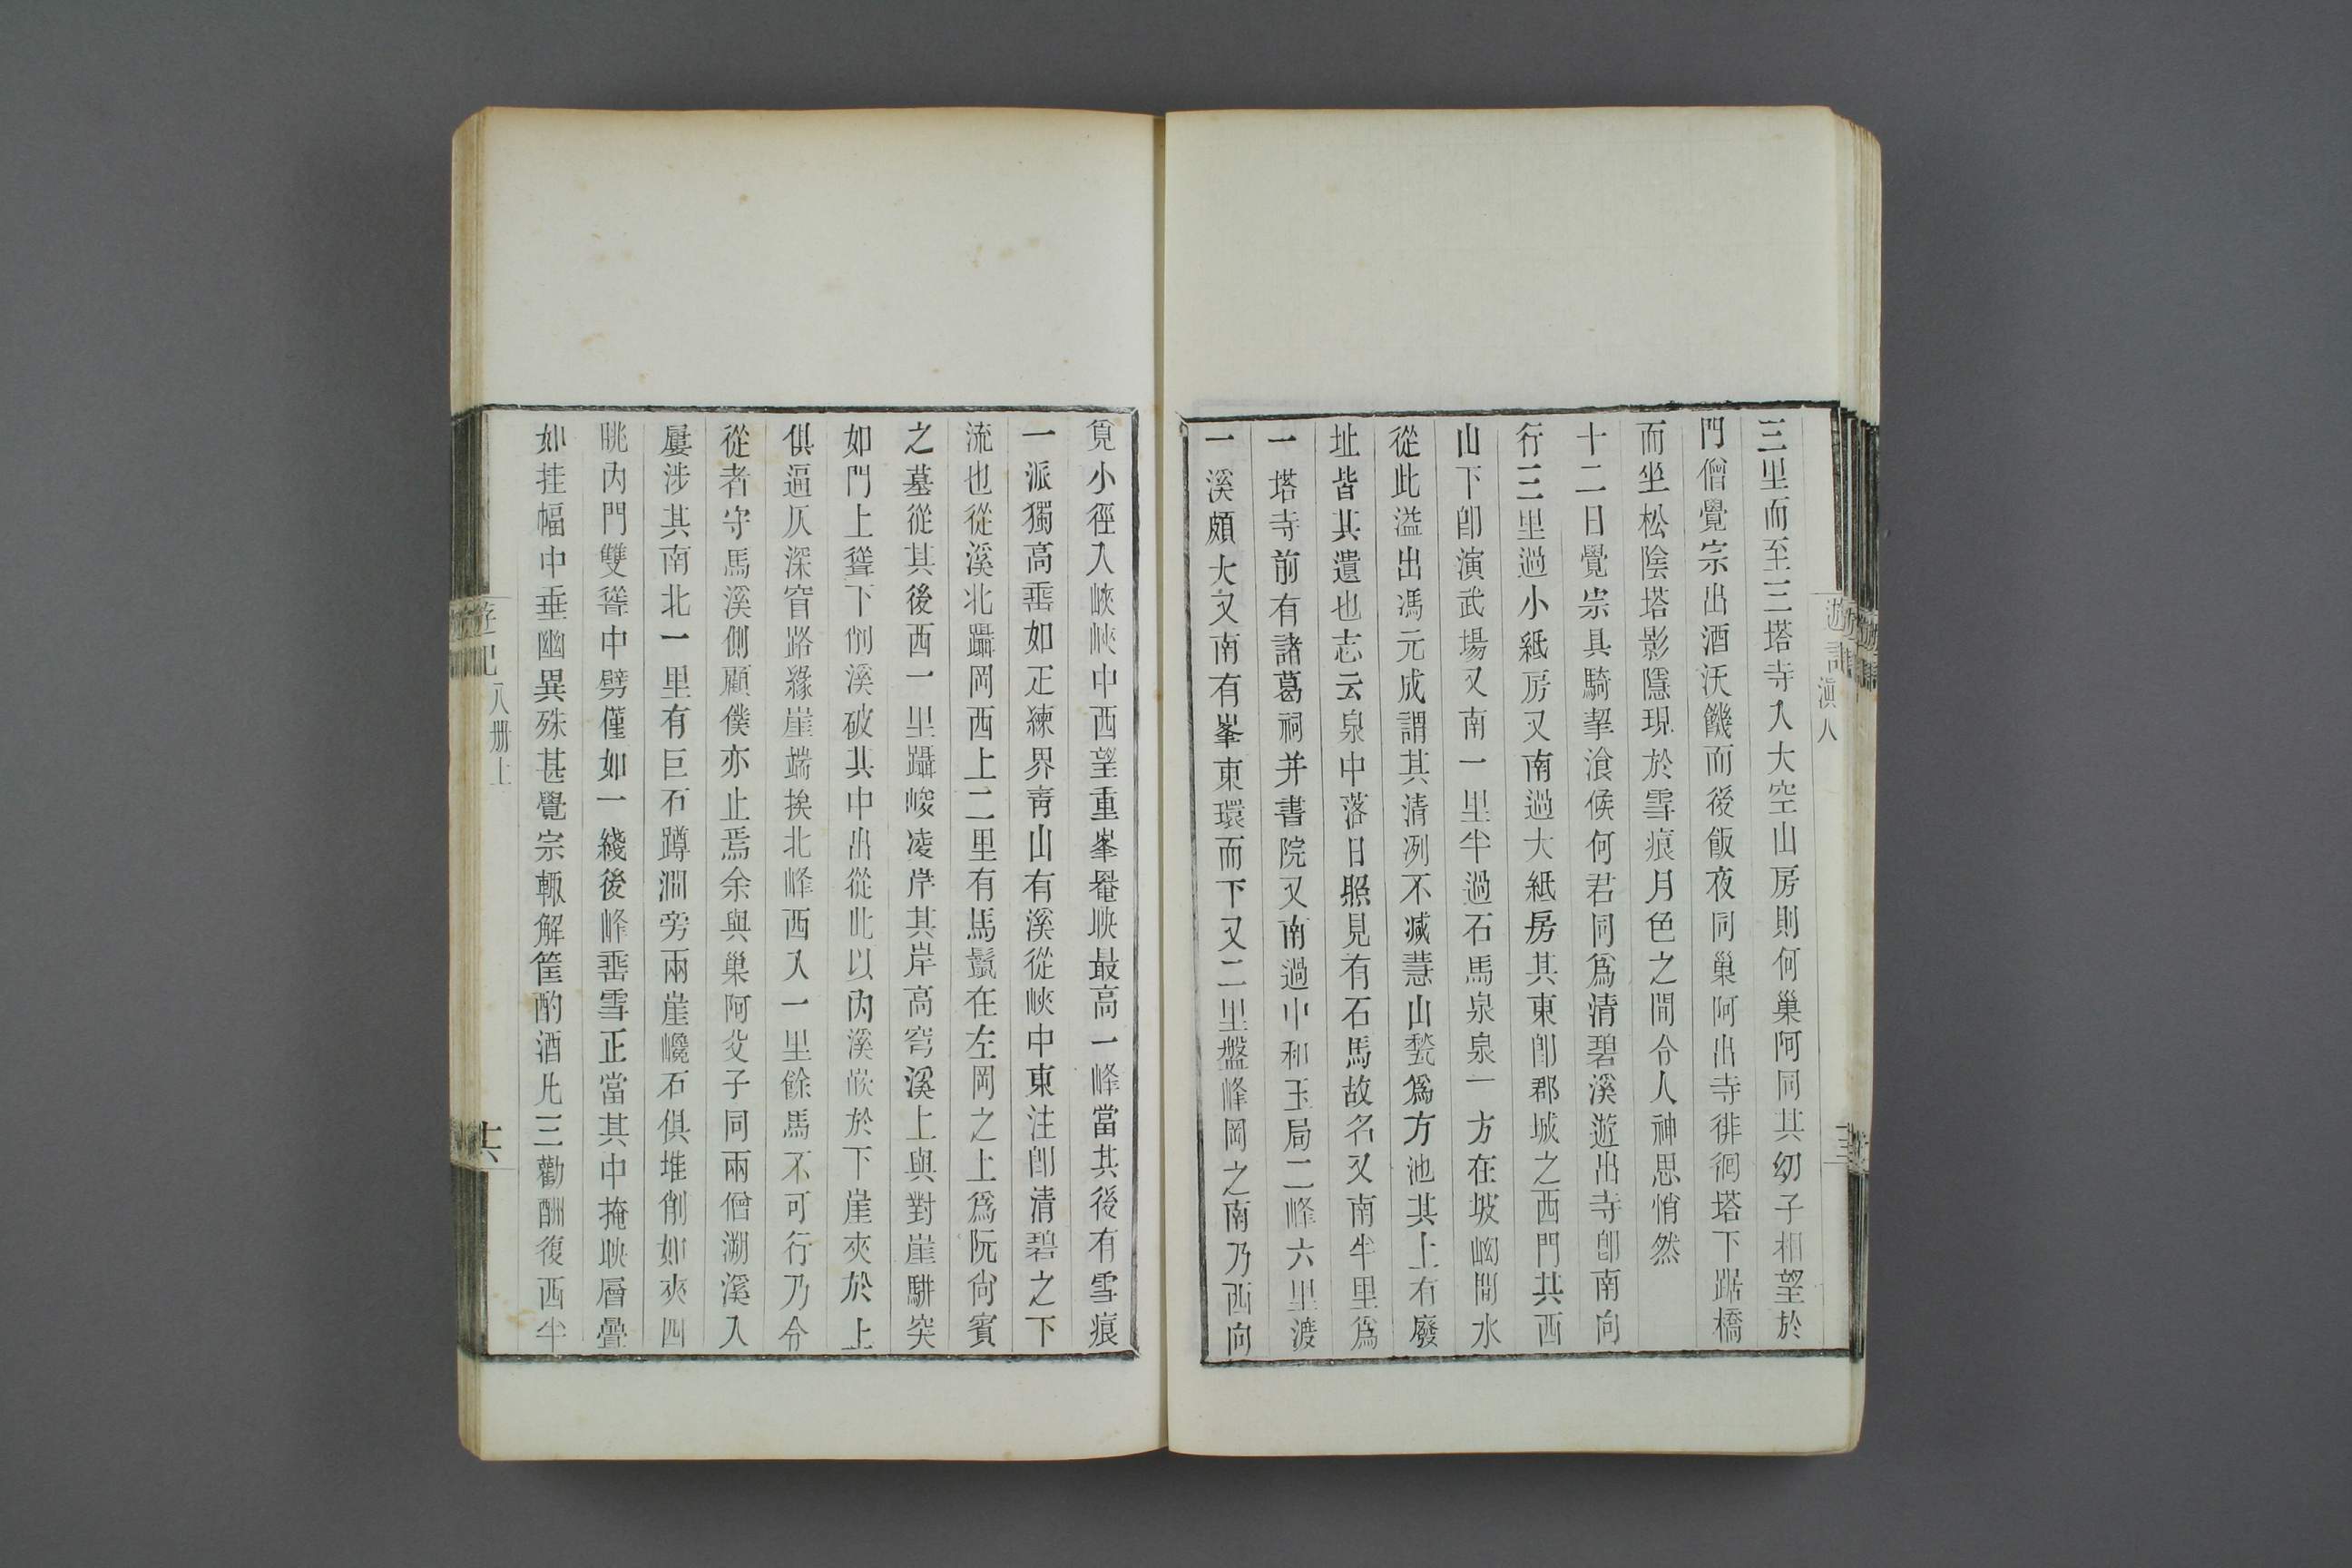 三里而至三塔寺入大空山房則何巢阿同其幼子相望於
門僧覺宗出酒沃饑而後飯夜同巢阿出寺徘徊塔下踞橋
而坐松陰塔影隱現於雪痕月色之間令人神思悄然
十二日覺宗具騎挈飡候何君同爲淸碧溪遊出寺卽南向
行三里過小紙房又南過大紙房其東卽郡城之西門其西
山下卽演武場又南一里半過石馬泉泉一方在坡㘭間水
從此溢出馮元成謂其清冽不減慧山甃爲方池其上有廢
址皆其遺也志云泉中落日照見有石馬故名又南半里爲
一塔寺前有諸葛祠并書院又南過中和玉局二峰六里渡
一溪頗大又南有峯東環而下又二里盤峰岡之南乃西向
覓小徑入峽峽中西望重峯罨映最高一峰當其後有雪痕
一派獨高垂如正練界靑山有溪從峽中東注卽清碧之下
流也從溪北躡岡西上二里有馬鬣在左岡之上爲阮尙賓
之墓從其後西一里躡峻凌岸其岸高穹溪上與對崖騈突
如門上聳下削溪破其中出從此以內溪嵌於下崖夾於上
俱逼仄深窅路緣崖端挨北峰西入一里餘馬不可行乃令
從者守馬溪側顧僕亦止焉余與巢阿父子同兩僧溯溪入
屢涉其南北一里有巨石蹲澗旁兩崖巉石俱堆削如夾四
眺內門雙聳中劈僅如一綫後峰垂雪正當其中掩映層疊
如挂幅中垂幽異殊甚覺宗輙解筐酌酒凢三勸酬復西半
遊記
八册上
共
遊記
滇八